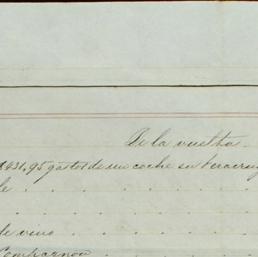 De la vuelta
431,95 gastos de un coche en Veracruz
de vino